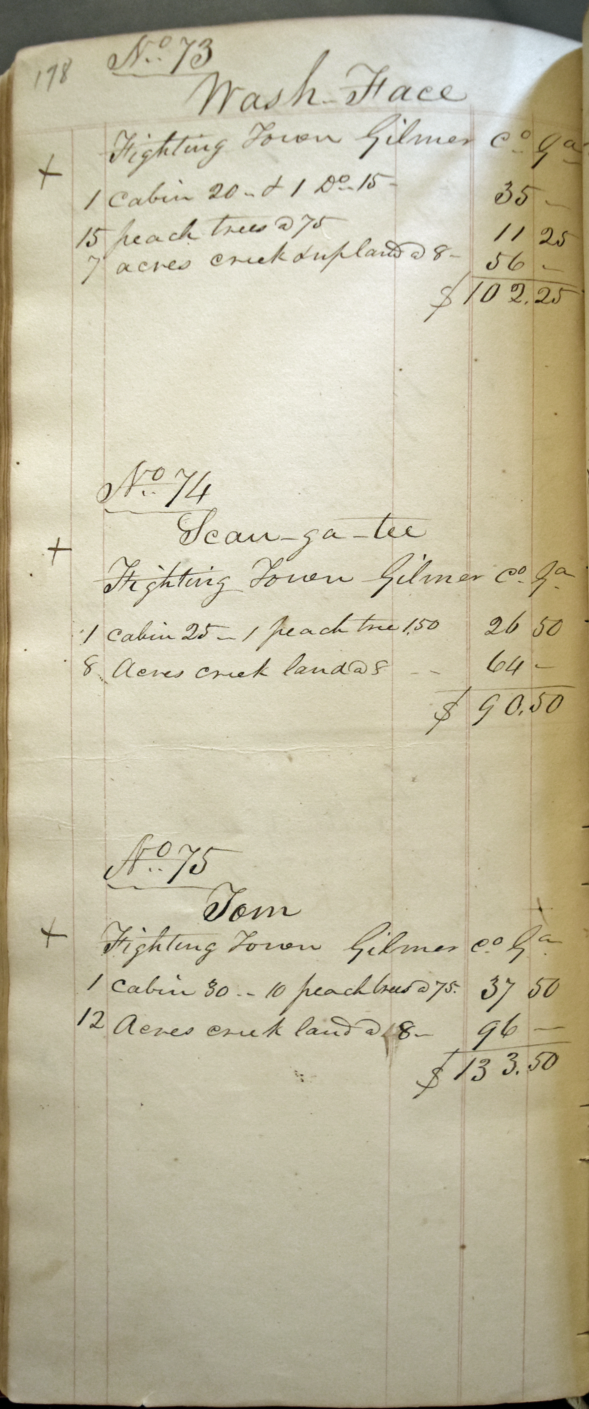 178 No. 73
Wash Face
+ Fighting Town Gilmer Co Ga
1 cabin 20 - & 1 Do 15 - 35 -
15 peach trees @ 75 11 25
7 acres creek & upland @ 8 - 56 -
$ 102.25
No. 74
Scau-ga-tee
+ Fighting Town Gilmer Co Ga
1 cabin 25 - 1 peach tree 1.50 26 50
8 Acres creek land @ 8 - - 64 -
$ 90.50
No. 75
Tom
+ Fighting Town Gilmer Co Ga
1 cabin 30 - - 10 peach trees @ 75 37 50
12 Acres creek land @ 8 - 96 -
$ 133.50